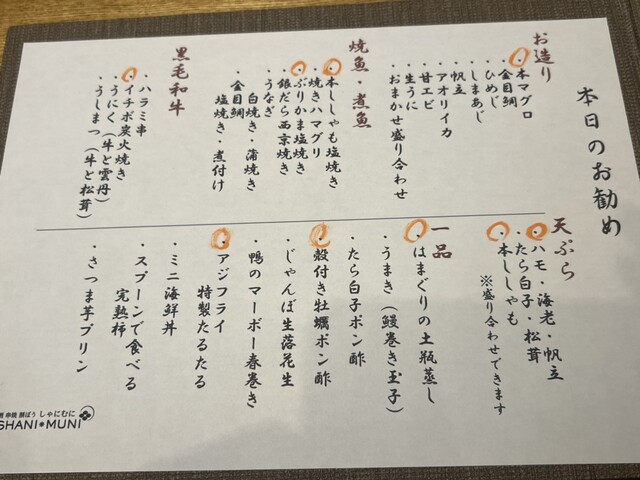 本日のお勧め
お造り
・本マグロ
・金目鯛
・ひめじ
・しまあじ
・帆立
・アオリイカ
・甘エビ
・生うに
・おまかせ盛り合わせ
焼魚・煮魚
・本ししゃも塩焼き
・焼きハマグリ
・ぶりかま塩焼き
・銀だら西京焼き
・うなぎ
白焼き・蒲焼き
・金目鯛
塩焼き・煮付け
黒毛和牛
・ハラミ串
・イチボ炭火焼き
・うにく(牛と雲丹)
・うしまつ(牛と松茸)
天ぷら
・ハモ・海老・帆立
・たら白子・松茸
・本ししゃも
※盛り合わせできます
一品
・はまぐりの土瓶蒸し
・うまき(鰻巻き玉子)
・たら白子ポン酢
・殻付き牡蠣ポン酢
・じゃんぼ生落花生
・鴨のマーボー春巻き
・アジフライ
特製たるたる
・ミニ海鮮丼
・スプーンで食べる
完熟柿
・さつま芋プリン
串焼 朝ぼう しゃにむに
SHANI★MUNI